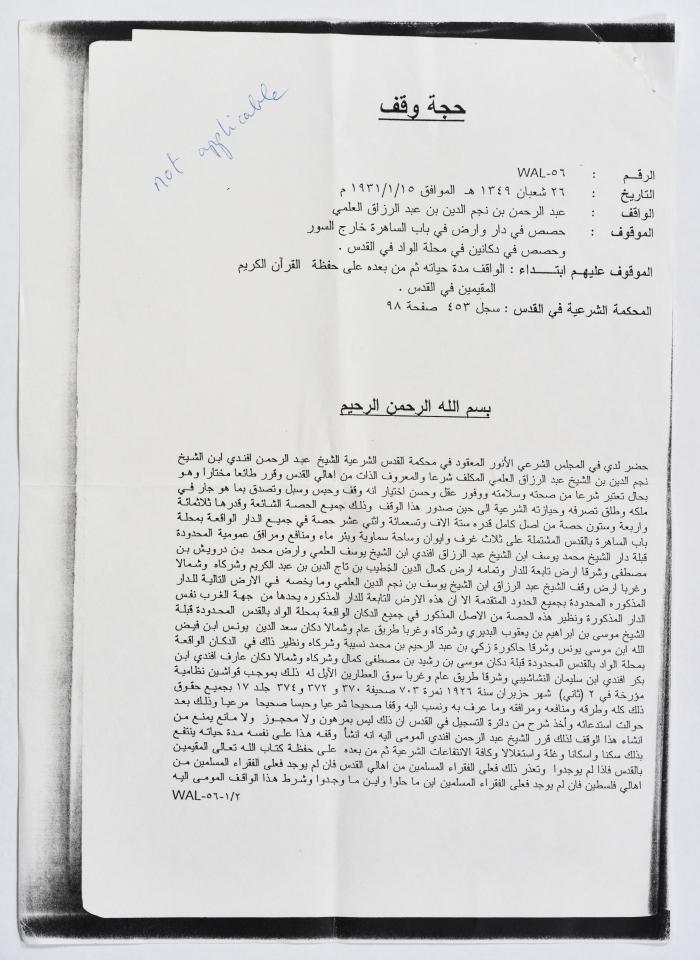 not applicable
حجة وقف
الرقم : WAL-٥٦
التاريخ : ٢٦ شعبان ١٣٤٩ هـ الموافق ١٩٣١/١/١٥ م
الواقف : عبد الرحمن بن نجم الدين بن عبد الرزاق العلمي
الموقوف : حصص في دار وارض في باب الساهرة خارج السور
وحصص في دكانين في محلة الواد في القدس .
الموقوف عليهم ابتـــداء : الواقف مدة حياته ثم من بعده على حفظة القرآن الكريم
المقيمين في القدس .
المحكمة الشرعية في القدس : سجل ٤٥٣ صفحة ٩٨
بسم الله الرحمن الرحيم
حضر لدي في المجلس الشرعي الأنور المعقود في محكمة القدس الشرعية الشيخ عبد الرحمن افندي ابن الشيخ
نجم الدين بن الشيخ عبد الرزاق العلمي المكلف شرعا والمعروف الذات من اهالي القدس وقرر طائعا مختارا وهو
بحال تعتبر شرعا من صحته وسلامته ووفور عقل وحسن اختيار انه وقف وحبس وسبل وتصدق بما هو جار في
ملكه وطلق تصرفه وحيازته الشرعية الى حين صدور هذا الوقف وذلك جميع الحصة الشائعة وقدرها ثلاثمائة
واربعة وستون حصة من اصل كامل قدره ستة الاف وتسعمائة واثني عشر حصة في جميع الدار الواقعة بمحلة
باب الساهرة بالقدس المشتملة على ثلاث غرف وايوان وساحة سماوية وبئر ماء ومنافع ومرافق عمومية المحدودة
قبلة دار الشيخ محمد يوسف ابن الشيخ عبد الرزاق افندي ابن الشيخ يوسف العلمي وارض محمد بن درويش بن
مصطفى وشرقا ارض تابعة للدار وتمامه ارض كمال الدين الخطيب بن تاج الدين بن عبد الكريم وشركاه وشمالا
وغربا ارض وقف الشيخ عبد الرزاق ابن الشيخ يوسف بن نجم الدين العلمي وما يخصه في الارض التالية للدار
المذكوره المحدودة بجميع الحدود المتقدمة الا ان هذه الارض التابعة للدار المذكوره يحدها من جهة الغرب نفس
الدار المذكورة ونظير هذه الحصة من الاصل المذكور في جميع الدكان الواقعة بمحلة الواد بالقدس المحدودة قبلة
الشيخ موسى بن ابراهيم بن يعقوب البديري وشركاه وغربا طريق عام وشمالا دكان سعد الدين يونس ابن فيض
الله ابن موسى يونس وشرقا حاكورة زكي بن عبد الرحيم بن محمد نسيبة وشركاه ونظير ذلك في الدكان الواقعة
بمحلة الواد بالقدس المحدودة قبلة دكان موسى بن رشيد بن مصطفى كمال وشركاه وشمالا دكان عارف افندي ابن
بكر افندي ابن سليمان النشاشيبي وشرقا طريق عام وغربا سوق العطارين الآيل له ذلك بموجب قواشين نظامية
مؤرخة في ٢ (ثاني) شهر حزيران سنة ١٩٢٦ نمرة ٧٠٣ صحيفة ٣٧٠ و ٣٧٢ و ٣٧٤ جلد ١٧ بجميع حقوق
ذلك كله وطرقه ومنافعه ومرافقه وما عرف به ونسب اليه وقفا صحيحا شرعيا وحبسا صحيحا مرعيا وذلك بعد
حوالت استدعائه وأخذ شرح من دائرة التسجيل في القدس ان ذلك ليس بمرهون ولا محجوز ولا مانع يمنع من
انشاء هذا الوقف لذلك قرر الشيخ عبد الرحمن افندي المومى اليه انه انشأ وقفه هذا على نفسه مدة حياته ينتفع
بذلك سكنا واسكانا وغلة واستغلالا وكافة الانتفاعات الشرعية ثم من بعده على حفظة كتاب الله تعالى المقيمين
بالقدس فاذا لم يوجدوا وتعذر ذلك فعلى الفقراء المسلمين من اهالي القدس فان لم يوجد فعلى الفقراء المسلمين من
اهالي فلسطين فان لم يوجد فعلى الفقراء المسلمين اين ما حلوا واين ما وجدوا وشرط هذا الواقف المومى اليه
WAL-٥٦-١/٢